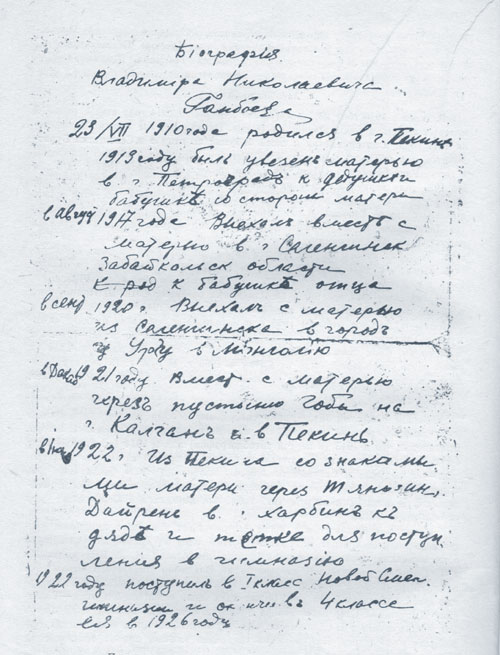 Біография
Владимира Николаевича
Ганбоева
23/VII 1910 года родился в г. Пекине
1913 году былъ увезенъ матерью
в г. Петроградъ к дедушки
бабушкѣ со стороны матери
в август 1917 года Выехалъ вместѣ с
матерью в г Селенгинск
Забайкольск области
к бабушкѣ отца
в сент 1920 г. Выехалъ с матерью
из Селенгинска в городъ
Ургу в Монголию
1921 году Вмест. с матерью
черезъ пустыню Гоби на
г. Калганъ и в Пекинъ
1922 г. Из Пекина со знакомы
ми матери через Тяньзин,
Дайренъ в г. Харбинъ къ
дядѣ и тетке для поступ
ления в гимназію
1922 году поступилъ в I класс Новой Смеш.
гимназии и 4 классе
ея в 1926 году